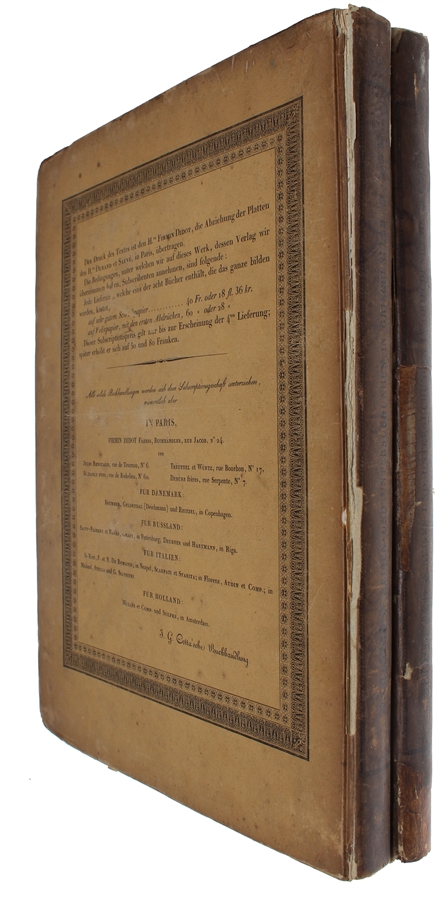 Der Druck des Textes ist den H.ⁿ Firmin Didot, die Abziehung der Platten
den H.ⁿ Durand et Sauvé, in Paris, übertragen.
Die Bedingungen, unter welchen wir auf dieses Werk, dessen Verlag wir
übernommen haben, Subscribenten annehmen, sind folgende:
Jede Lieferung, welche eines der acht Bücher enthält, die das ganze bilden
werden, kostet,
auf sehr gutem Papier ......... 40 Fr. oder 18 fl. 36 kr.
auf Velinpapier, mit den ersten Abdrücken, 60 » oder 28 »
Dieser Subscriptionspreis gilt nur bis zur Erscheinung der 4ᵗᵉⁿ Lieferung;
später erhöht er sich auf 50 und 80 Franken.
Alle solide Buchhandlungen werden sich dieser Subscriptionsgeschäft unterziehen,
namentlich aber
IN PARIS,
FIRMIN DIDOT Father, Buchhändler, rue Jacob, N° 24.
rue de Tournon, N° 6.
Treuttel et Würtz, rue Bourbon, N° 17.
rue de Richelieu, N° 60.
Debure frères, rue Serpente, N° 7.
FÜR DÄNEMARK:
Brummer, Gyldendal (Deichmann) und Reitzel, in Copenhagen.
FÜR RUSSLAND:
in Petersburg; Deubner und Hartmann, in Riga.
FÜR ITALIEN:
De Romanis; in Neapel, in Florenz, Audin et Comp.; in
Mailand,
FÜR HOLLAND:
Müller et Comp. und Sülpke, in Amsterdam.
J. G. Cotta'sche Buchhandlung